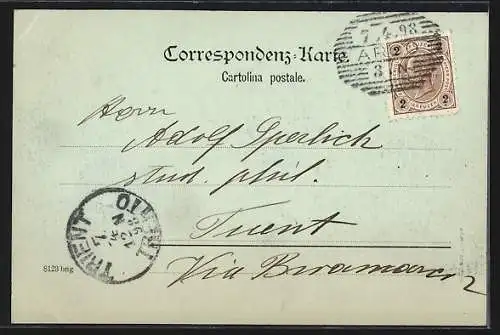 Correspondenz-Karte.
Cartolina postale.
7/4.98
AR
3 N
2 2
2 2
Herrn
Adolf Sperlich
stud. phil.
Trient
Via Bramarch
TRIENT
TRENTO
8129 bmg